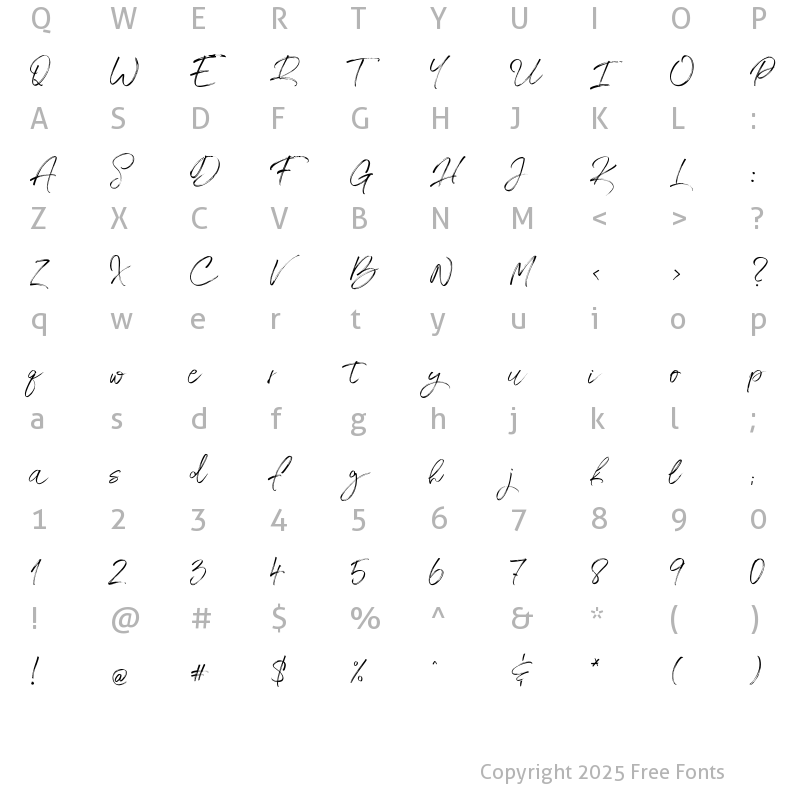 Q W E R T Y U I O P
Q W E R T Y U I O P
A S D F G H J K L :
A S D F G H J K L :
Z X C V B N M < > ?
Z X C V B N M < > ?
q w e r t y u i o p
q w e r t y u i o p
a s d f g h j k l ;
a s d f g h j k l ;
1 2 3 4 5 6 7 8 9 0
1 2 3 4 5 6 7 8 9 0
! @ # $ % ^ & * ( )
! @ # $ % ^ & * ( )
Copyright 2025 Free Fonts